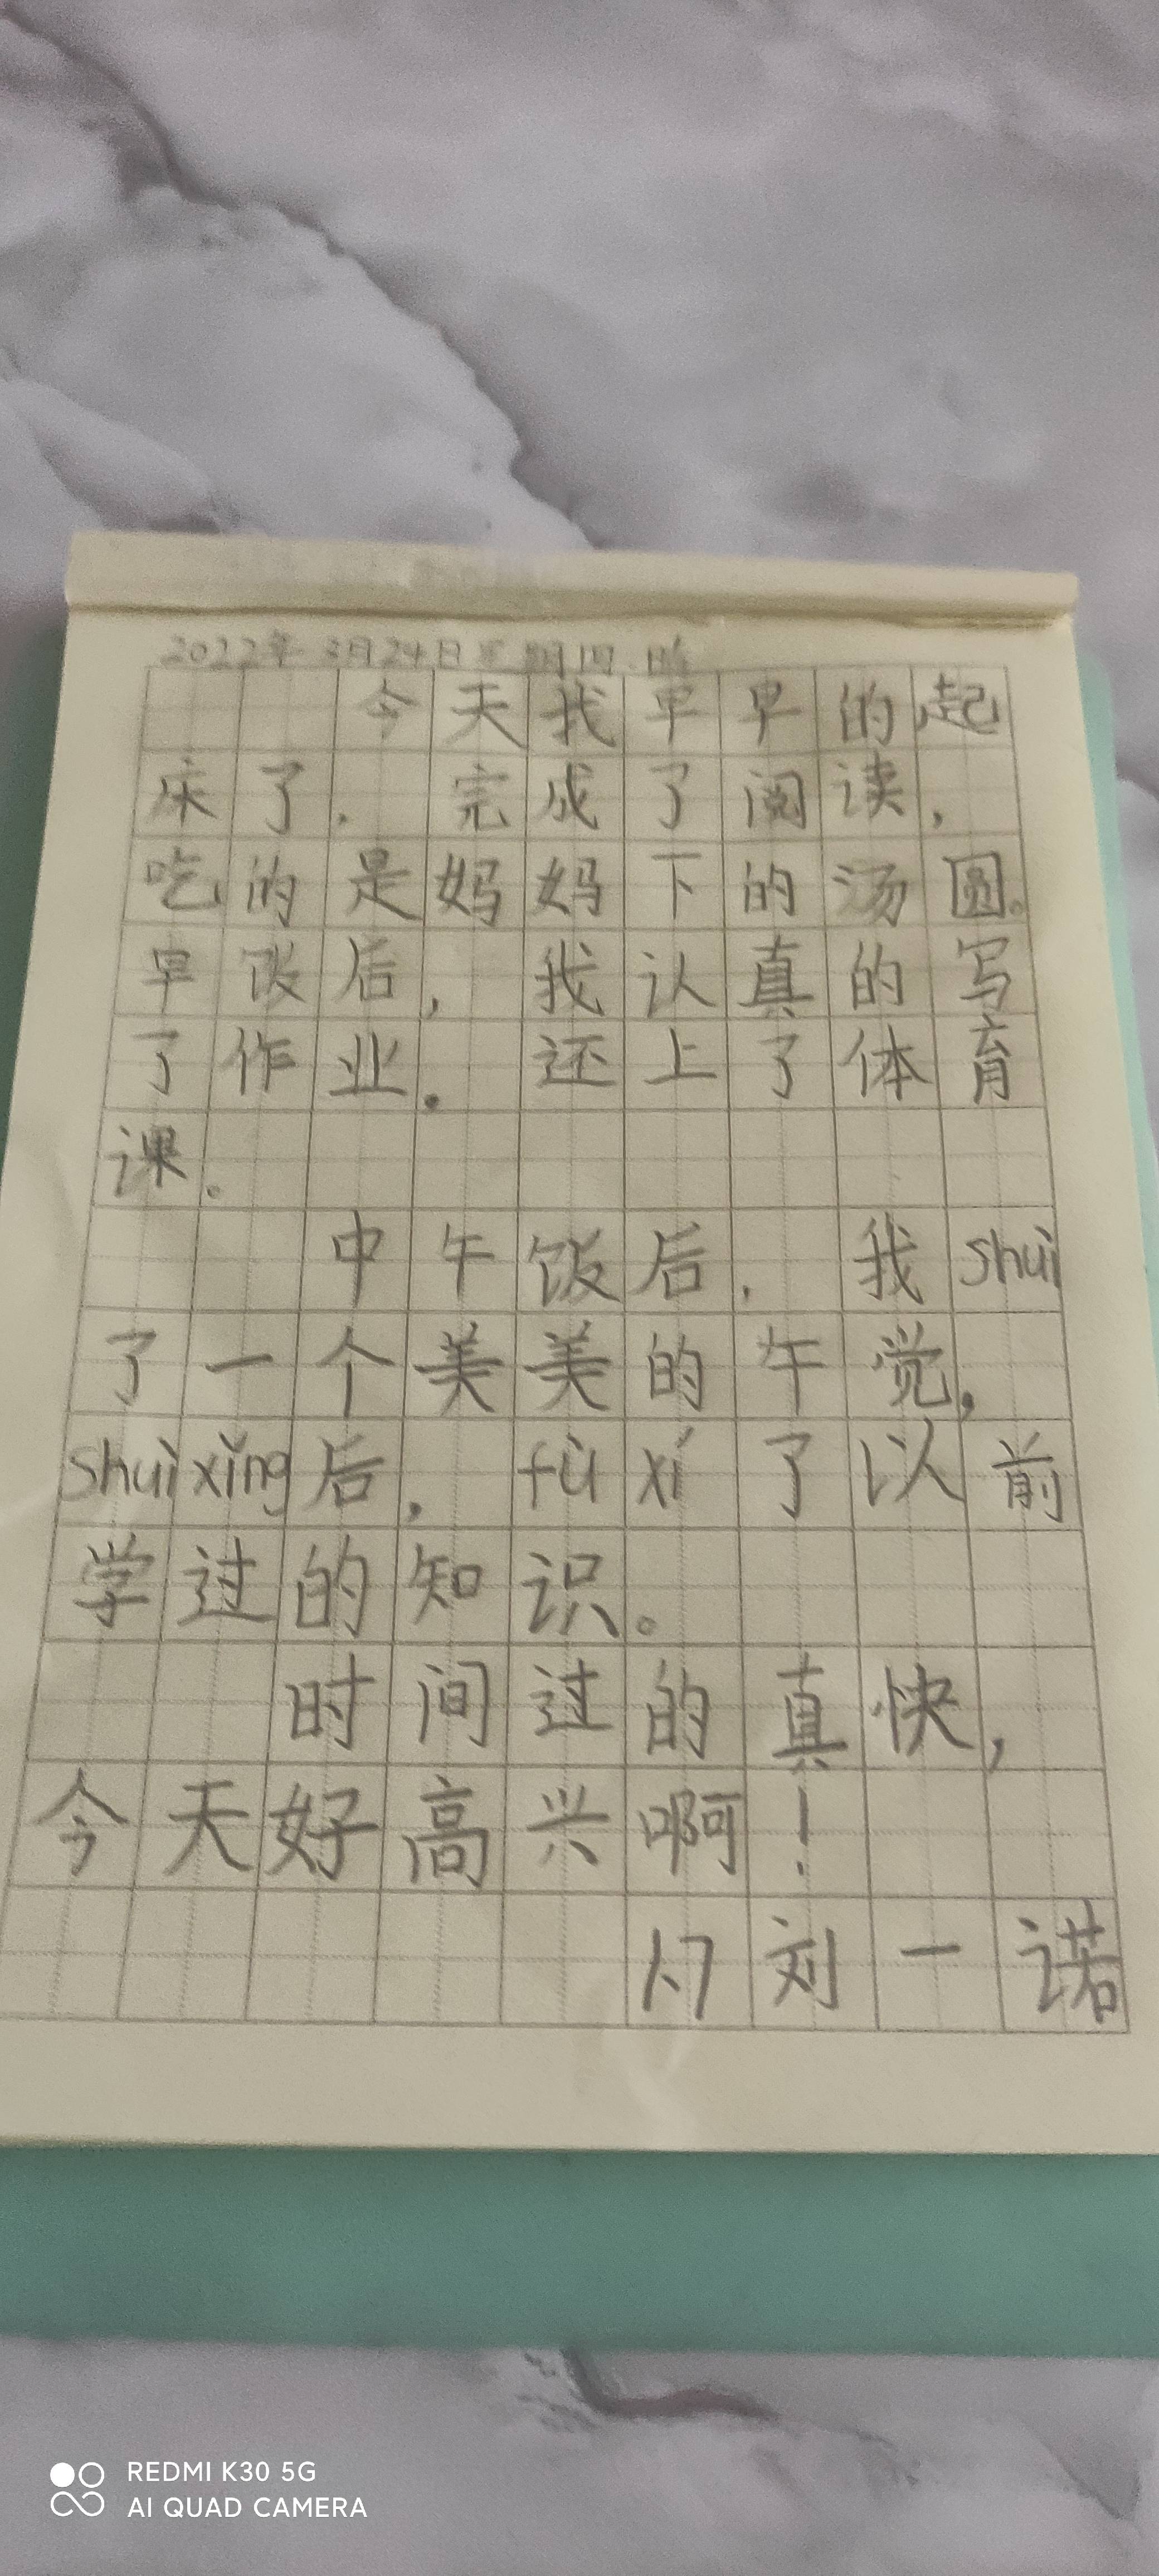 2022年 3月24日 星期四 晴
今天我早早的起
床了，完成了阅读，
吃的是妈妈下的汤圆。
早饭后，我认真的写
了作业。还上了体育
课。
中午饭后，我shuì
了一个美美的午觉，
shuì xǐng后，fù xí了以前
学过的知识。
时间过的真快，
今天好高兴啊！
刘一诺
REDMI K30 5G
AI QUAD CAMERA